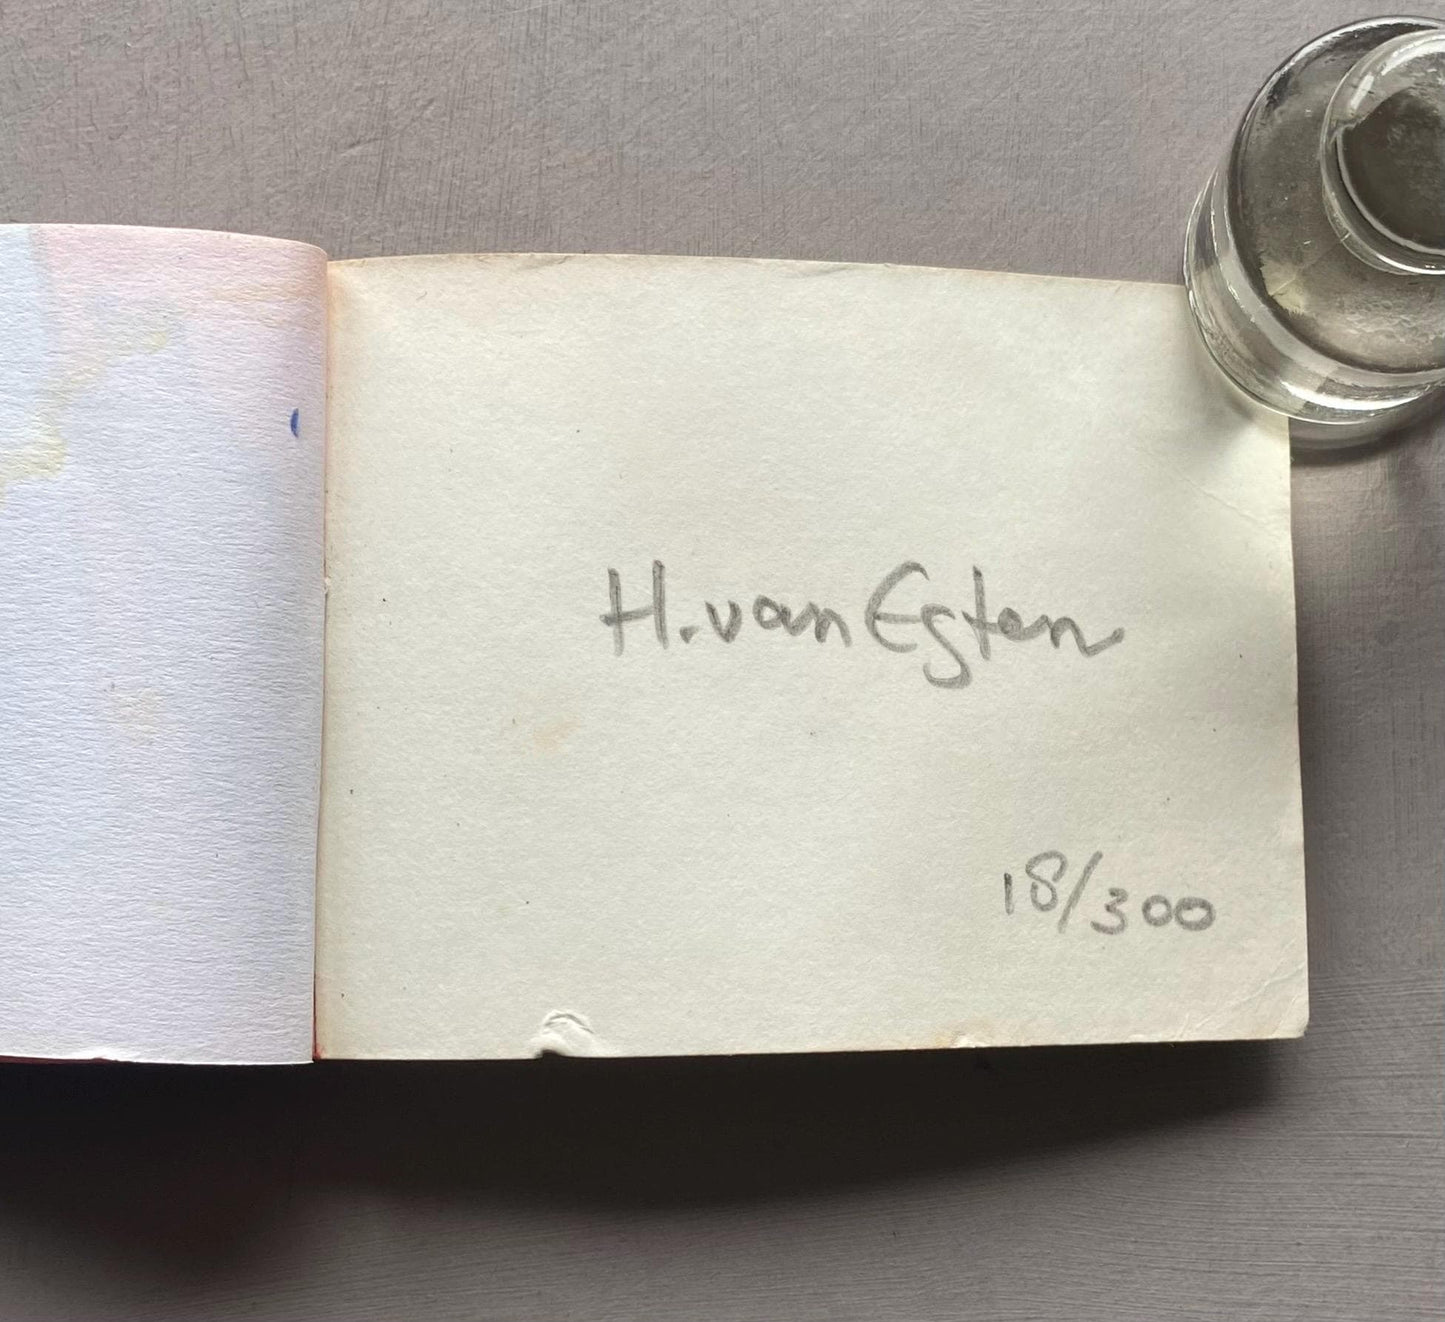 H. van Egten
18/300